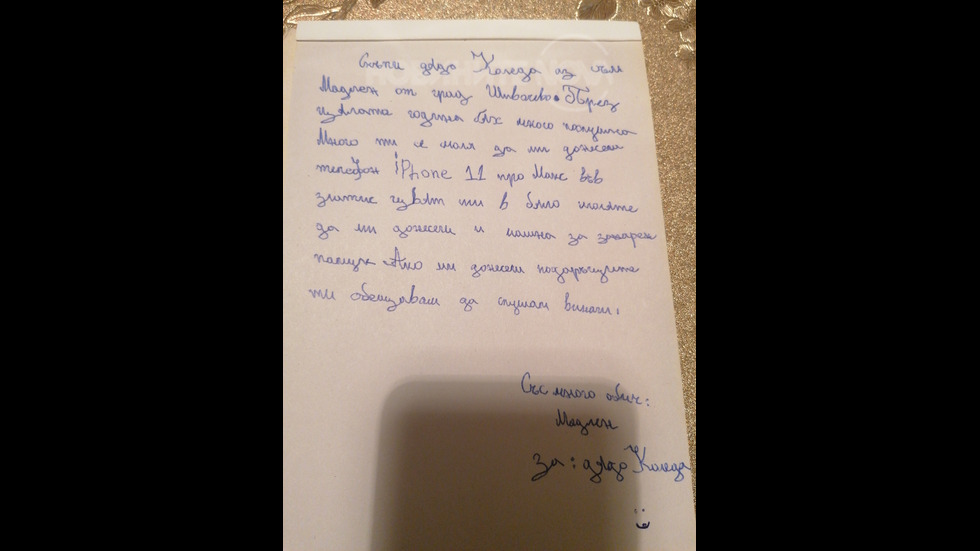 Скъпи дядо Коледа аз съм
Мадлен от град Шивачево. През
цялата година бях много послушна
Много ти се моля да ми донесеш
телефон iPhone 11 про Макс във
златис цвят или в бяло молите
да ми донесеш и машина за захарен
памук. Ако ми донесеш подаръците
ти обещавам да слушам винаги.
Със много обич:
Мадлен
За: дядо Коледа